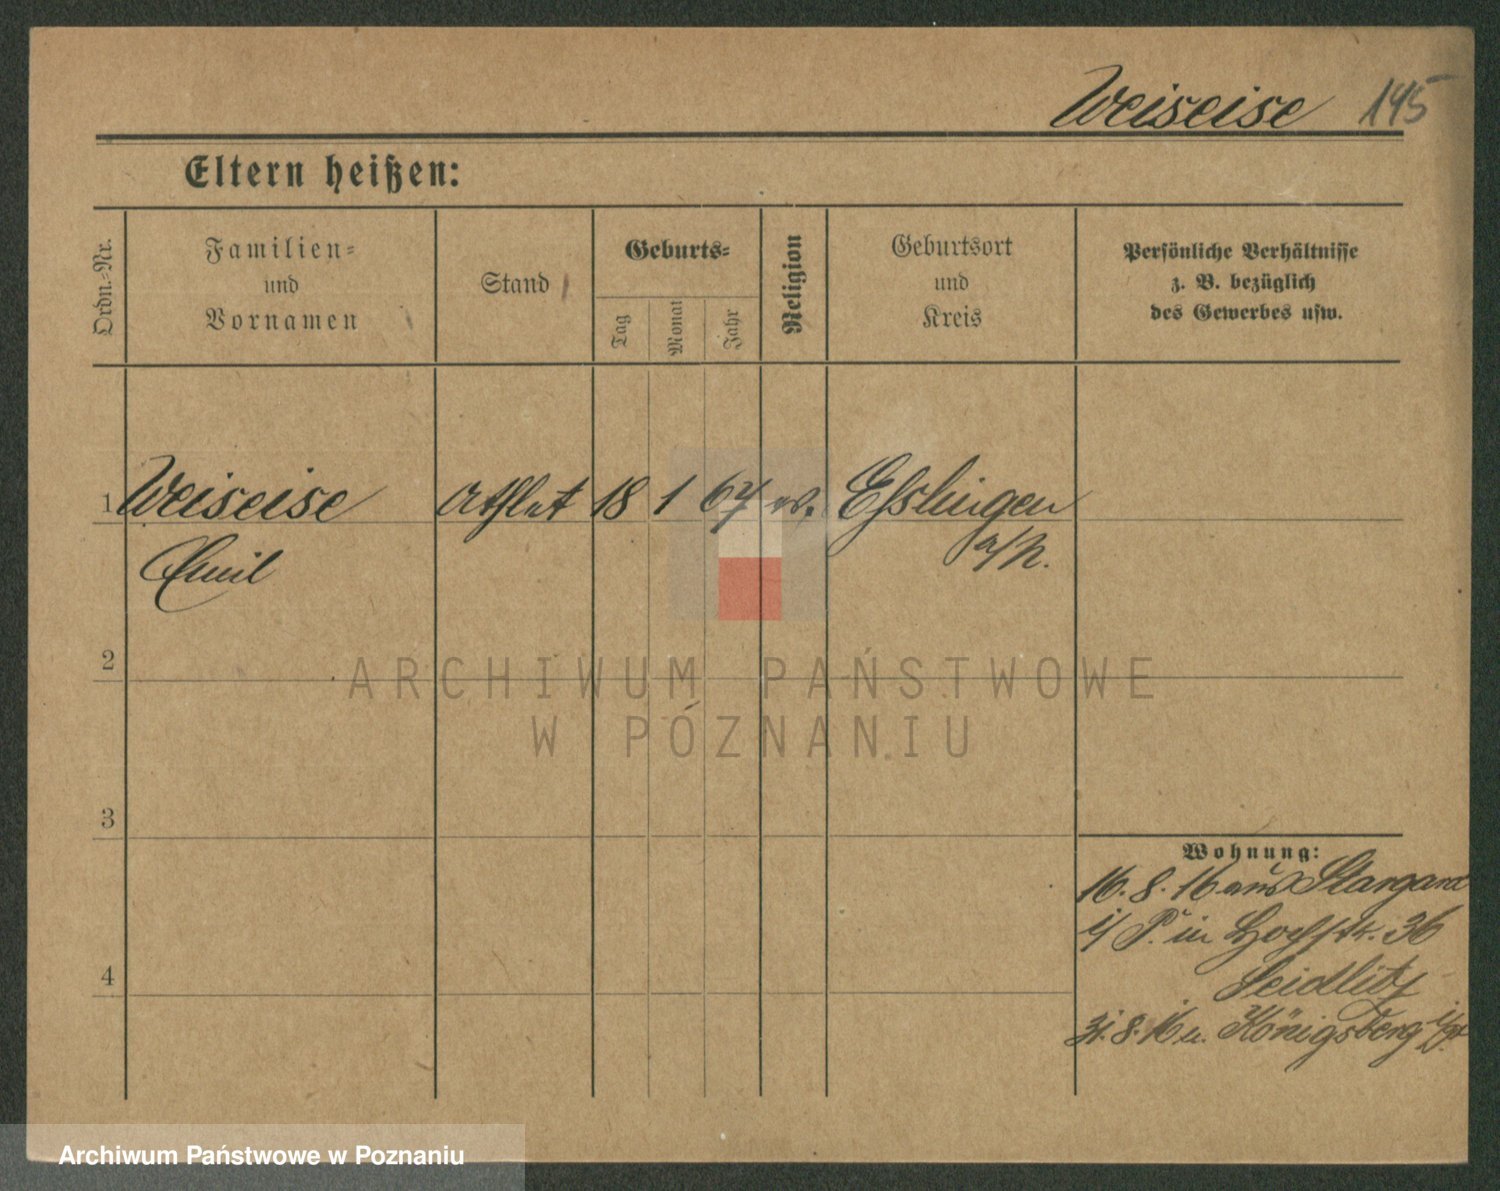 Weiseise 145
Eltern heißen:
Ordn.-Nr.
Familien-
und
Vornamen
Stand
Geburts-
Tag
Monat
Jahr
Religion
Geburtsort
und
Kreis
Persönliche Verhältnisse
z. B. bezüglich
des Gewerbes usw.
1 Weiseise Athlet 18 1 67 ev. Esslingen
Emil a/N.
2
ARCHIWUM PAŃSTWOWE
W POZNANIU
3
Wohnung:
16.8.16 aus Stargard
i/P. in Hochstr. 36
Seidlitz
4
31.8.16 n. Königsberg i/Pr.
Archiwum Państwowe w Poznaniu